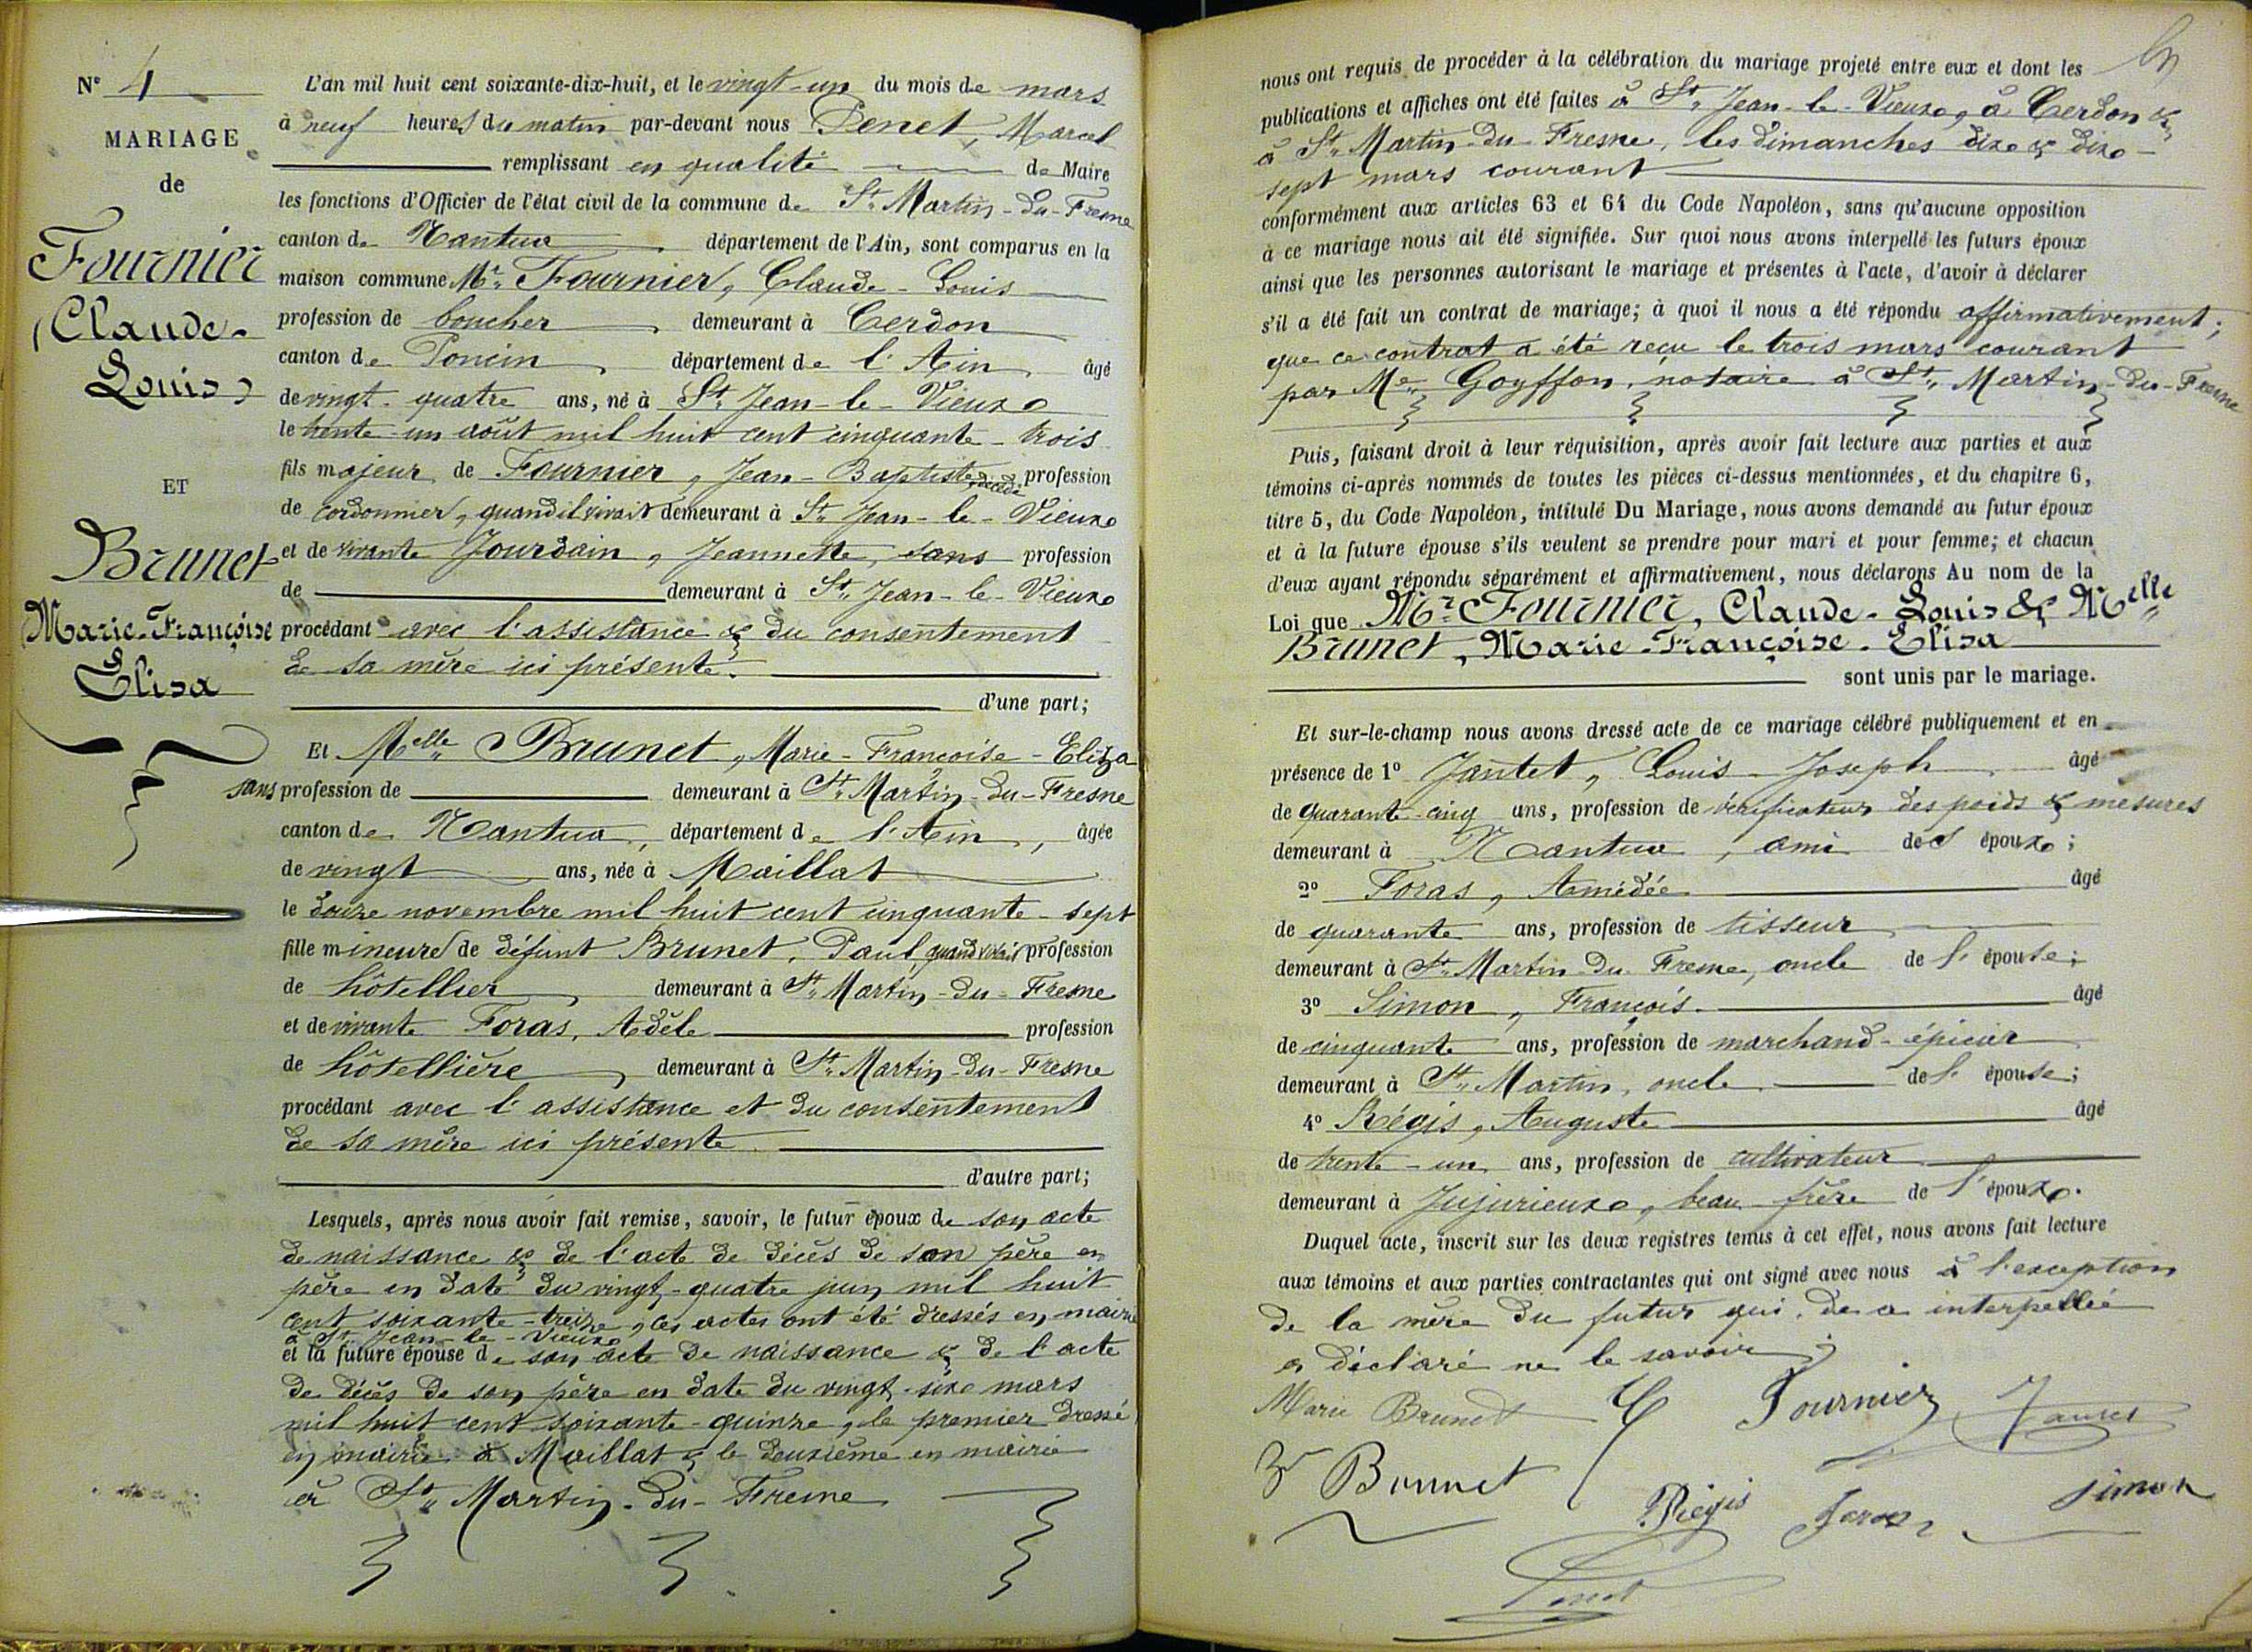 N° 4
MARIAGE
de
Fournier
(Claude-
Louis)
ET
Brunet
(Marie-Françoise
Elisa
L'an mil huit cent soixante-dix-huit, et le vingt-un du mois de mars
à neuf heures du matin par-devant nous Penet, Marcel
remplissant en qualité de Maire
les fonctions d'Officier de l'état civil de la commune de St. Martin-du-Fresne
canton de Nantua département de l'Ain, sont comparus en la
maison commune Mr. Fournier, Claude-Louis
profession de boucher, demeurant à Cerdon
canton de Poncin, département de l'Ain, âgé
de vingt-quatre ans, né à St. Jean-le-Vieux
le trente-un août mil huit cent cinquante-trois
fils majeur de Fournier, Jean-Baptiste, décédé profession
de cordonnier, quand il vivait demeurant à St. Jean-le-Vieux
et de vivante Jourdain, Jeannette, sans profession
de demeurant à St. Jean-le-Vieux
procédant avec l'assistance & du consentement
de sa mère ici présente.
d'une part;
Et Melle Brunet, Marie-Françoise-Eliza
sans profession de demeurant à St. Martin-du-Fresne
canton de Nantua, département de l'Ain, âgée
de vingt ans, née à Maillat
le douze novembre mil huit cent cinquante-sept
fille mineure de défunt Brunet, Paul, quand vivait profession
de hôtellier, demeurant à St. Martin-du-Fresne
et de vivante Foras, Adèle profession
de hôtellière, demeurant à St. Martin-du-Fresne
procédant avec l'assistance et du consentement
de sa mère ici présente.
d'autre part;
Lesquels, après nous avoir fait remise, savoir, le futur époux de son acte
de naissance & de l'acte de décès de son père en
père en date du vingt-quatre juin mil huit
cent soixante-treize, ces actes ont été dressés en mairie
à St. Jean-le-Vieux
et la future épouse de son acte de naissance & de l'acte
de décès de son père en date du vingt-six mars
mil huit cent soixante-quinze, le premier dressé
en mairie à Maillat & le deuxième en mairie
à St. Martin-du-Fresne
nous ont requis de procéder à la célébration du mariage projeté entre eux et dont les
publications et affiches ont été faites à St. Jean-le-Vieux, à Cerdon &
à St. Martin-du-Fresne, les dimanches dix & dix-
sept mars courant
conformément aux articles 63 et 64 du Code Napoléon, sans qu'aucune opposition
à ce mariage nous ait été signifiée. Sur quoi nous avons interpellé les futurs époux
ainsi que les personnes autorisant le mariage et présentes à l'acte, d'avoir à déclarer
s'il a été fait un contrat de mariage; à quoi il nous a été répondu affirmativement;
que ce contrat a été reçu le trois mars courant
par Me. Goyffon, notaire à St. Martin-du-Fresne
Puis, faisant droit à leur réquisition, après avoir fait lecture aux parties et aux
témoins ci-après nommés de toutes les pièces ci-dessus mentionnées, et du chapitre 6,
titre 5, du Code Napoléon, intitulé Du Mariage, nous avons demandé au futur époux
et à la future épouse s'ils veulent se prendre pour mari et pour femme; et chacun
d'eux ayant répondu séparément et affirmativement, nous déclarons Au nom de la
Loi que Mr. Fournier, Claude-Louis & Melle
Brunet, Marie-Françoise-Elisa
sont unis par le mariage.
Et sur-le-champ nous avons dressé acte de ce mariage célébré publiquement et en
présence de 1° Jantet, Louis-Joseph âgé
de quarante-cinq ans, profession de vérificateur des poids & mesures
demeurant à Nantua, ami des époux;
2° Foras, Amédée âgé
de quarante ans, profession de tisseur
demeurant à St. Martin-du-Fresne, oncle de l'épouse;
3° Simon, François. âgé
de cinquante ans, profession de marchand-épicier
demeurant à St. Martin, oncle de l'épouse;
4° Régis, Auguste âgé
de trente-un ans, profession de cultivateur
demeurant à Jujurieux, beau-frère de l'époux.
Duquel acte, inscrit sur les deux registres tenus à cet effet, nous avons fait lecture
aux témoins et aux parties contractantes qui ont signé avec nous à l'exception
de la mère du futur qui, de a interpellée
a déclaré ne le savoir.
Marie Brunet C Fournier Jantet
Ve Brunet Régis Foras Simon
Penet